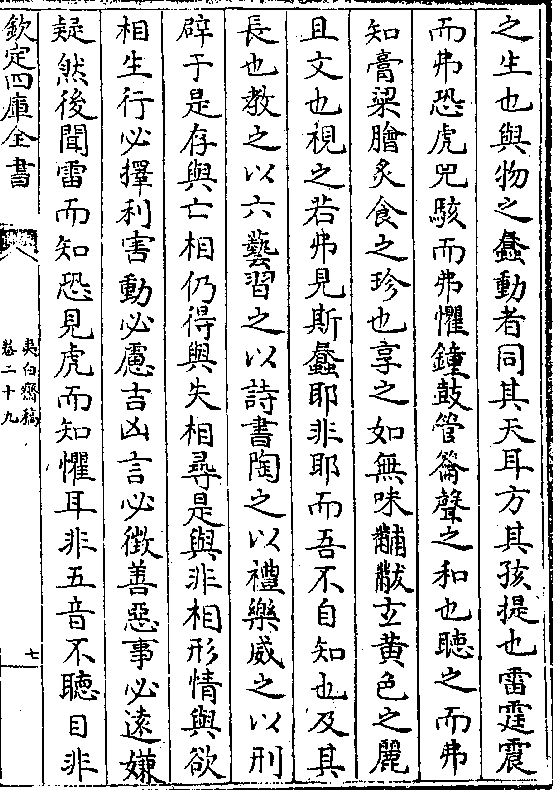 之生也與物之蠢動者同其天耳方其孩提也雷霆震
而弗恐虎兕駭而弗懼鐘鼓管籥聲之和也聽之而弗
知膏粱膾炙食之珍也享之如無味黼黻玄黄色之麗
且文也視之若弗見斯蠢耶非耶而吾不自知也及其
長也教之以六藝習之以詩書陶之以禮樂威之以刑
辟于是存與亡相仍得與失相尋是與非相形情與欲
相生行必擇利害動必慮吉凶言必徴善惡事必逺嫌
疑然後聞雷而知恐見虎而知懼耳非五音不聽目非
欽定四庫全書
夷白齋稿
卷二十九
七